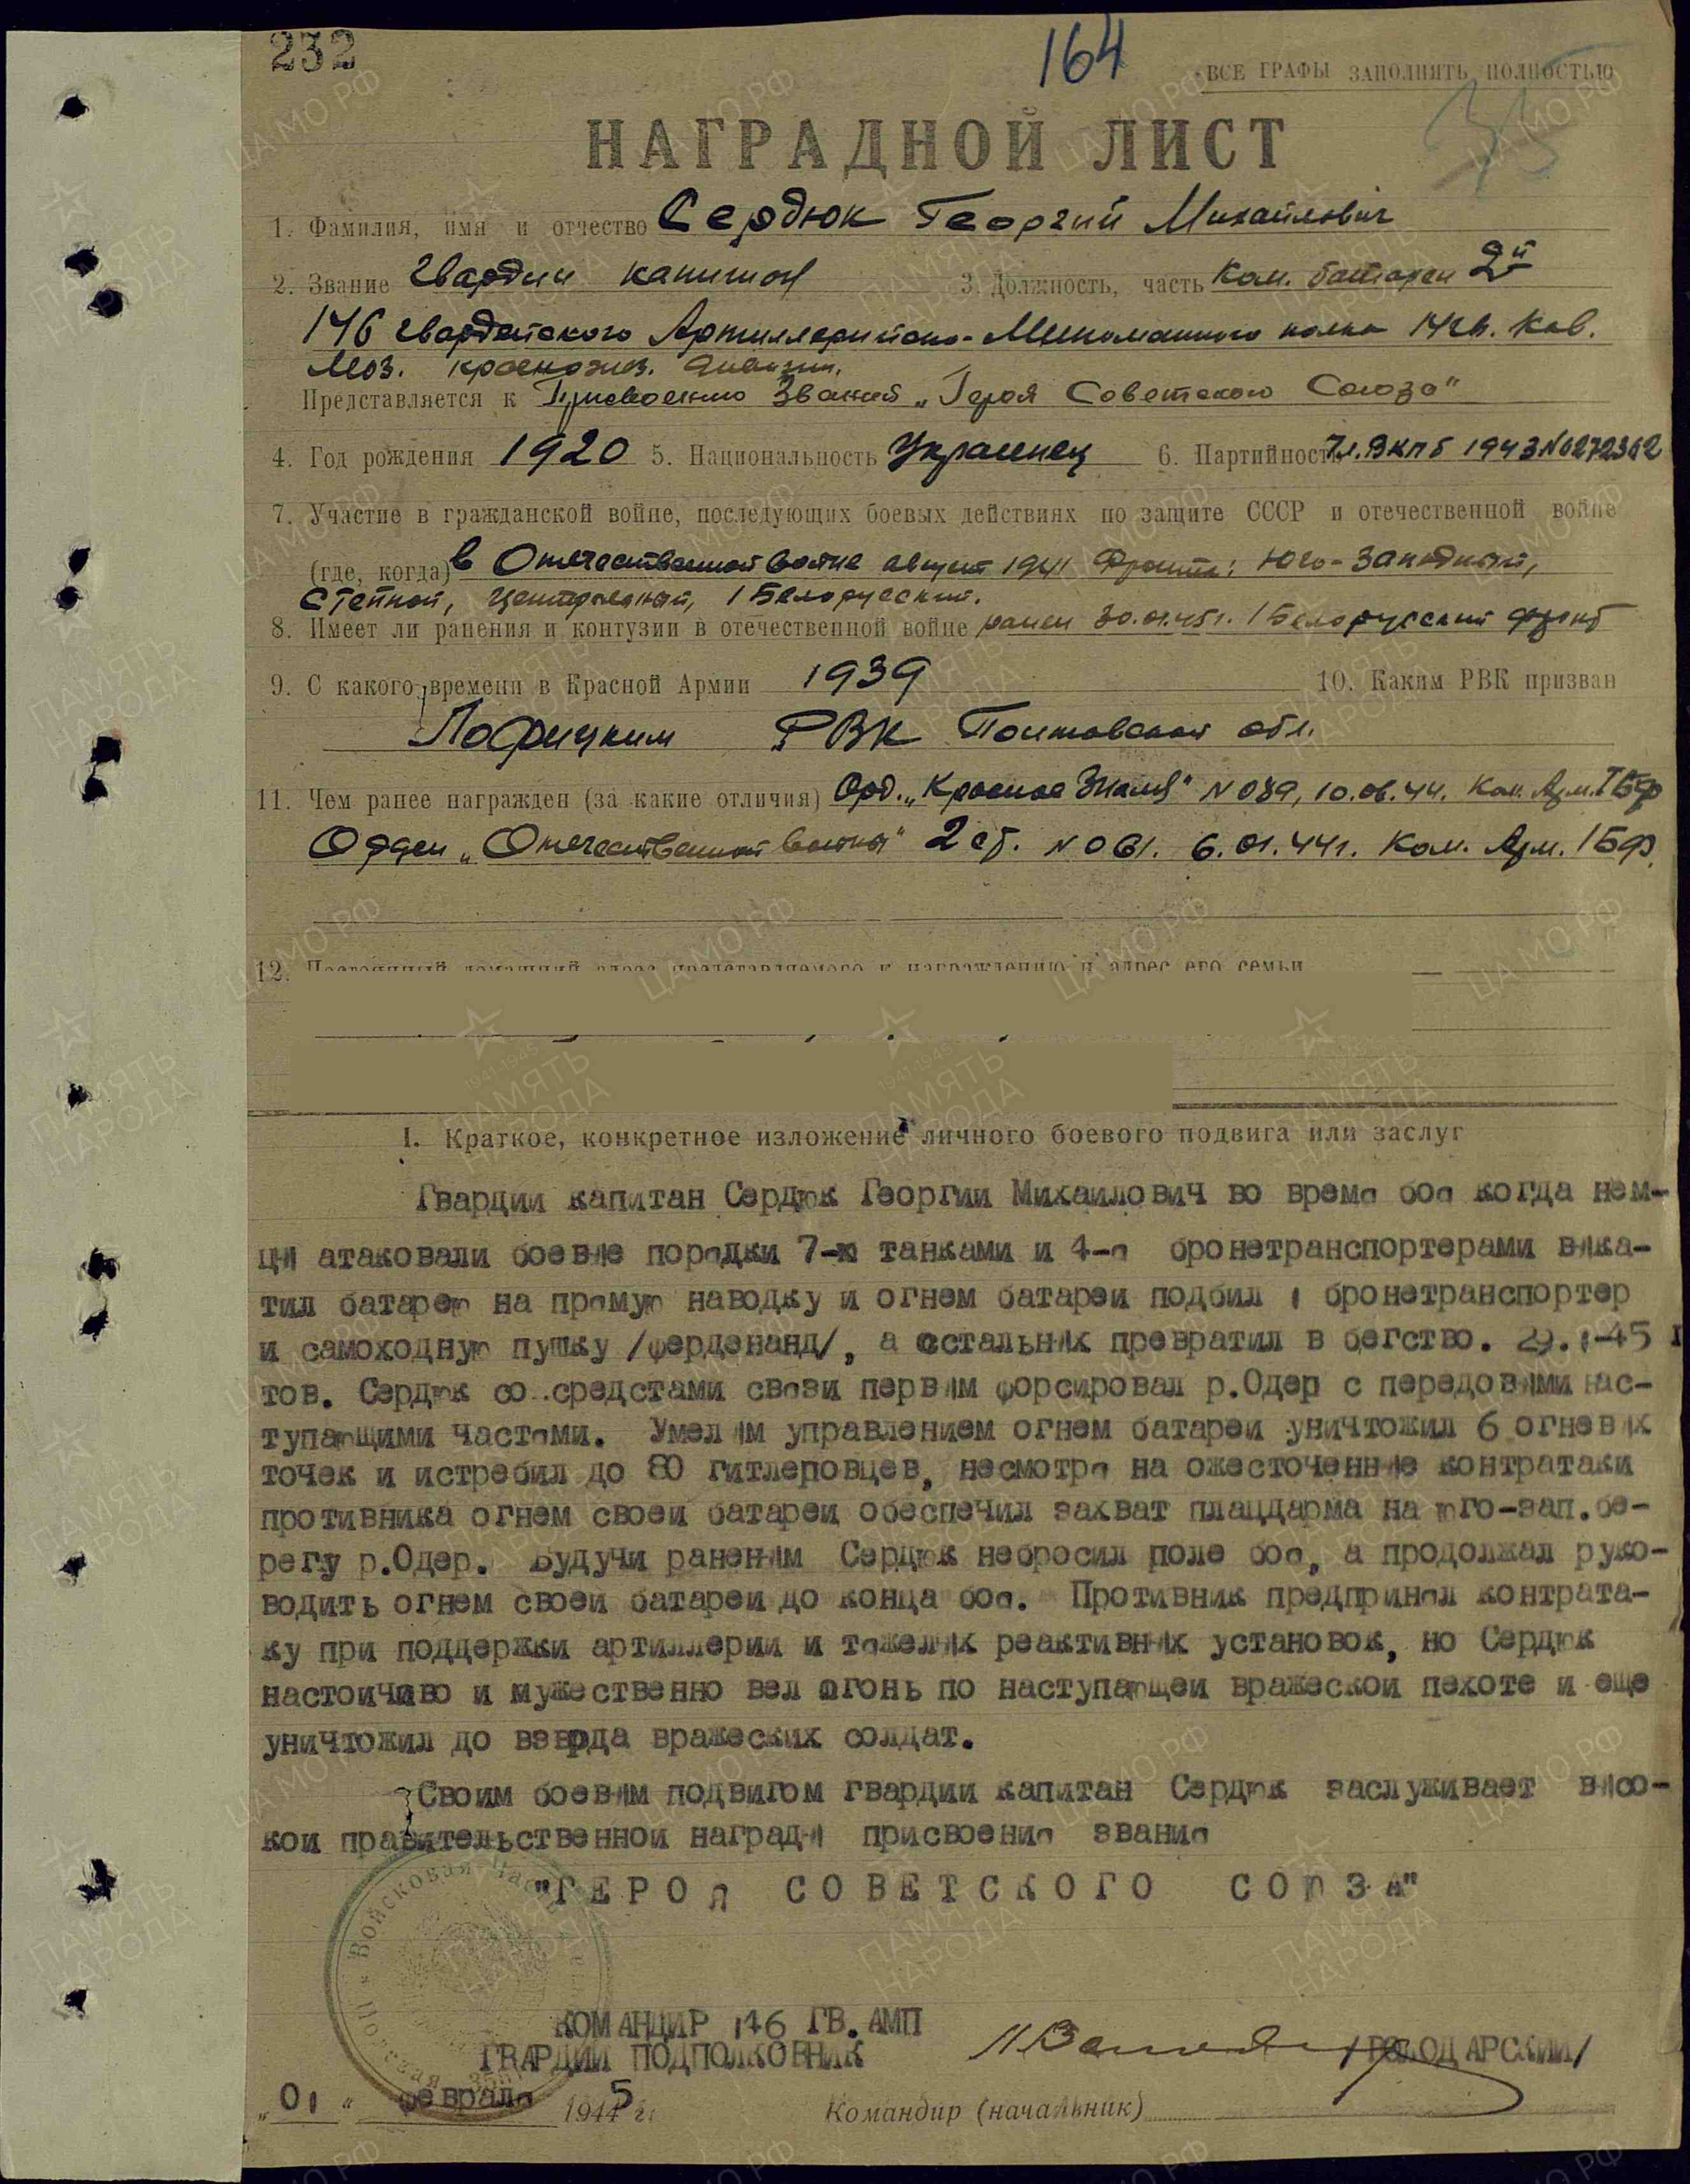 232
164
ВСЕ ГРАФЫ ЗАПОЛНЯТЬ ПОЛНОСТЬЮ
35
НАГРАДНОЙ ЛИСТ
1. Фамилия, имя и отчество Сердюк Георгий Михайлович
2. Звание Гвардии капитан 3. Должность, часть Ком. батареи 2й
146 гвардейского Артиллерийско-Минометного полка 14 гв. Кав.
Моз. краснозн. дивизии.
Представляется к Присвоению Званий „Героя Советского Союза"
4. Год рождения 1920 5. Национальность Украинец 6. Партийность Чл. ВКПб 1943 №
7. Участие в гражданской войне, последующих боевых действиях по защите СССР и отечественной войне
(где, когда) в Отечественной войне август 1941 Фронты: Юго-Западный,
Степной, Центральный, 1 Белорусский.
8. Имеет ли ранения и контузии в отечественной войне ранен 30.01.45г. 1 Белорусский фронт
9. С какого времени в Красной Армии 1939 10. Каким РВК призван
РВК Полтавской обл.
11. Чем ранее награжден (за какие отличия) Орд. „Красное Знамя" № 039, 10.06.44. Ком. Арт. 1БФ
Орден „Отечественной войны" 2 ст. № 061. 6.01.44г. Ком. Арт. 1БФ.
12. Постоянный домашний адрес представляемого к награждению и адрес его семьи
1. Краткое, конкретное изложение личного боевого подвига или заслуг
Гвардии капитан Сердюк Георгии Михаилович во время боя когда нем-
цы атаковали боевые порядки 7-ю танками и 4-я бронетранспортерами выка-
тил батарею на прямую наводку и огнем батареи подбил 1 бронетранспортер
и самоходную пушку /ферденанд/, а остальных превратил в бегство. 29.1-45 г
тов. Сердюк со средстами связи первым форсировал р.Одер с передовыми нас-
тупающими частями. Умелым управлением огнем батареи уничтожил 6 огневых
точек и истребил до 80 гитлеровцев, несмотря на ожесточенные контратаки
противника огнем своеи батареи обеспечил захват плацдарма на юго-зап.бе-
регу р.Одер. Будучи раненым Сердюк небросил поле боя, а продолжал руко-
водить огнем своеи батареи до конца боя. Противник предпринял контрата-
ку при поддержки артиллерии и тяжелых реактивных установок, но Сердюк
настоичиво и мужественно вел огонь по наступающеи вражескои пехоте и еще
уничтожил до взврда вражеских солдат.
Своим боевым подвигом гвардии капитан Сердюк заслуживает высо-
кои правительственнои награды присвоения звания
"ГЕРОЯ СОВЕТСКОГО СОЮЗА"
Войсковая часть Полевая
КОМАНДИР 146 ГВ. АМП
ГВАРДИИ ПОДПОЛКОВНИК /ВОЛОДАРСКИИ/
„01" февраля 1945 г.
Командир (начальник)